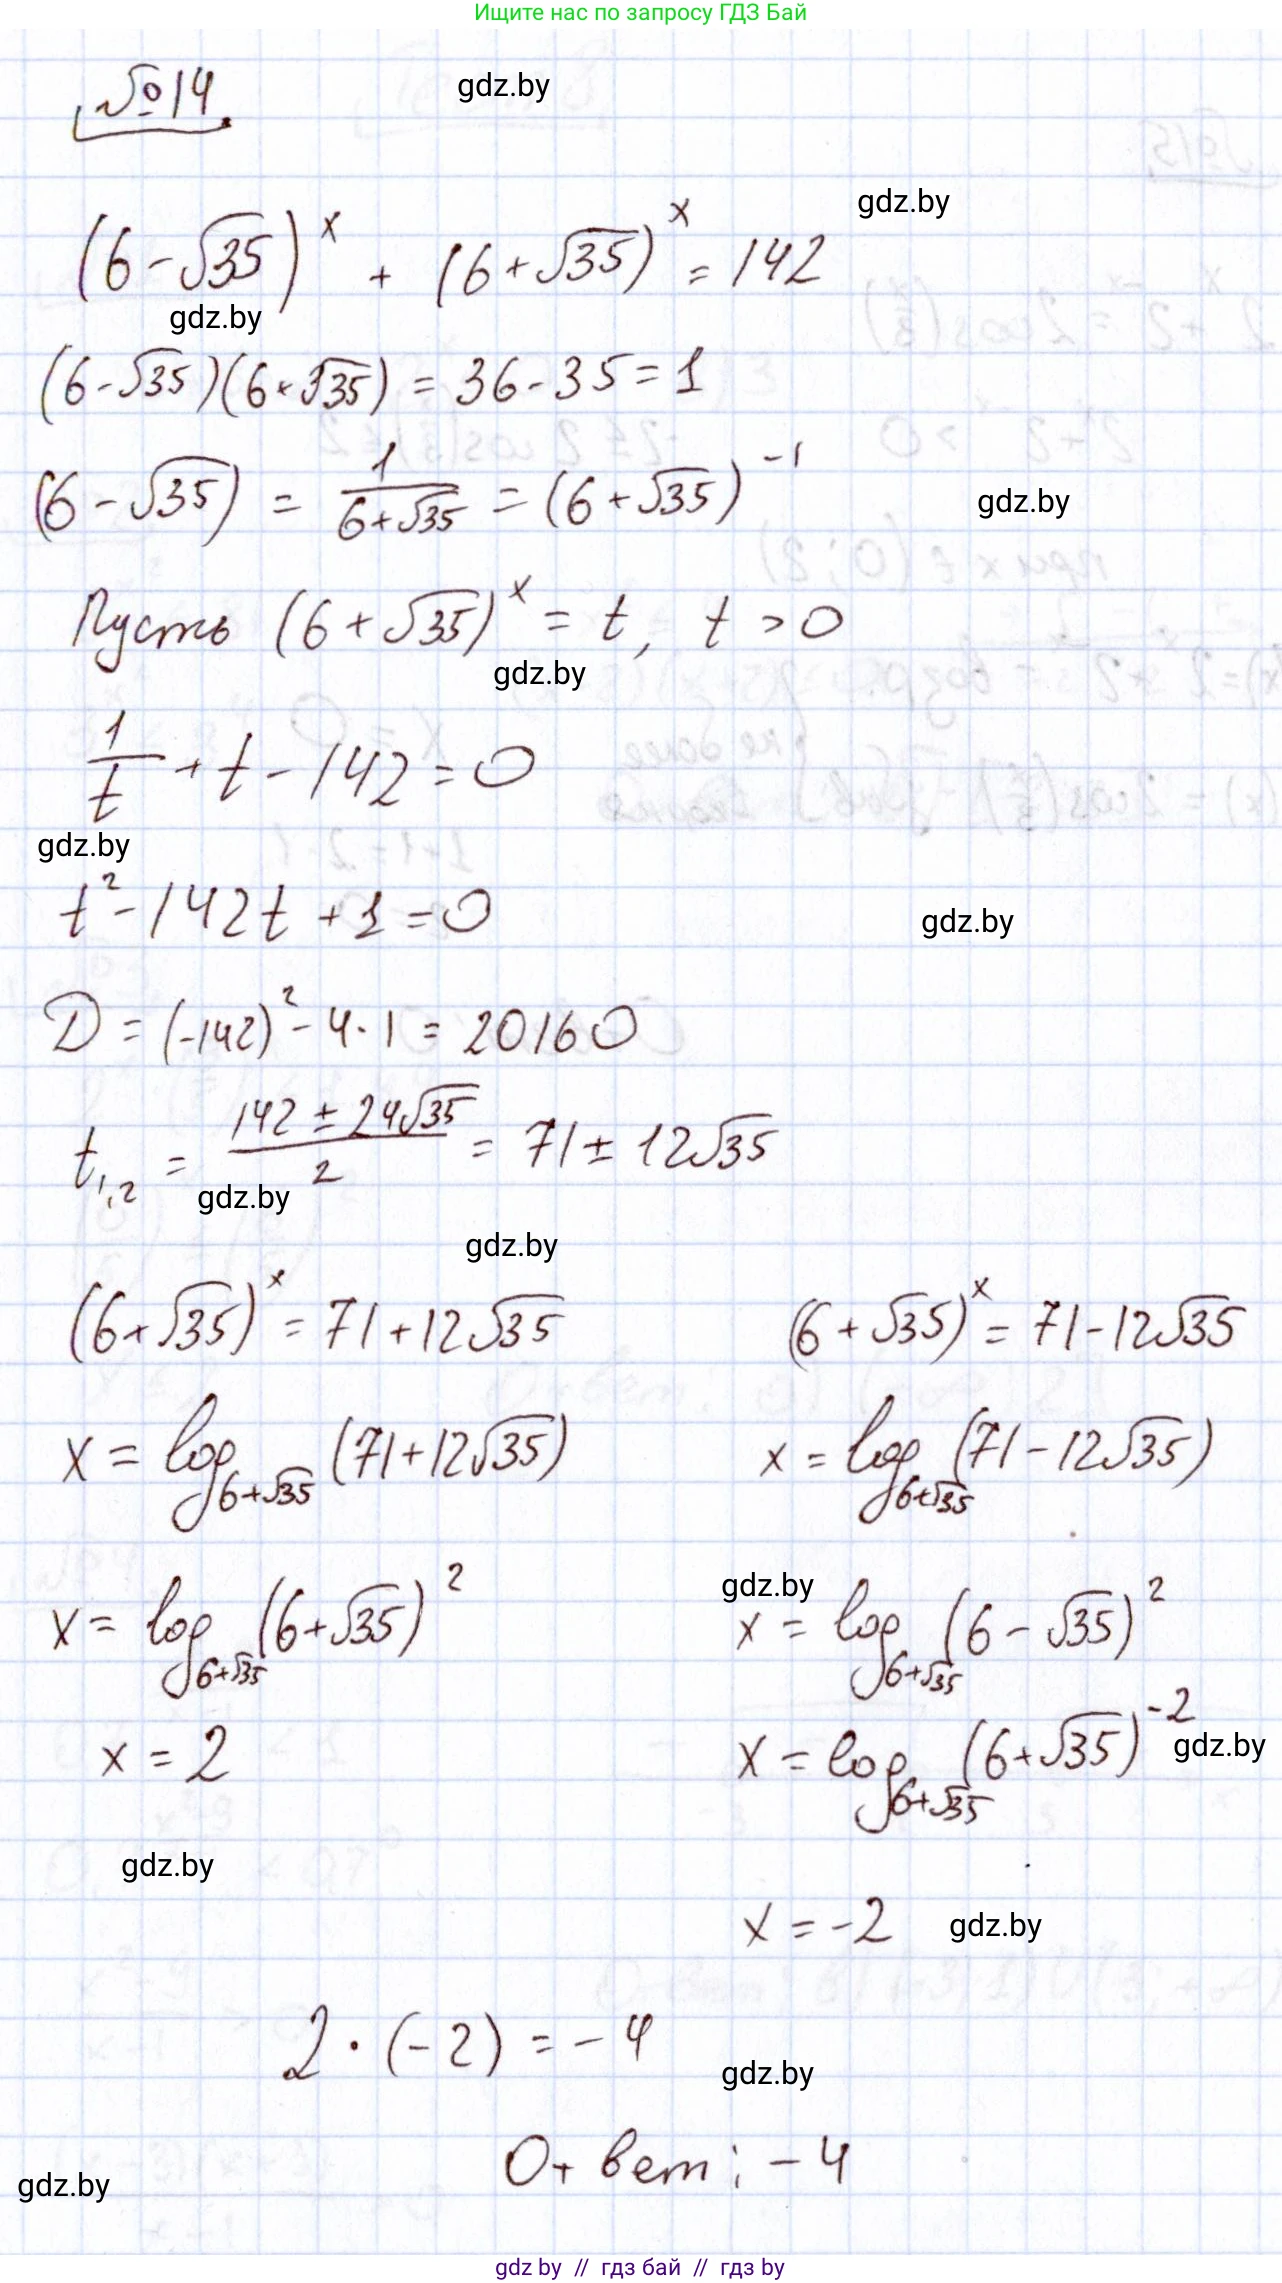 Ищите нас по запросу ГДЗ Бай
№14 gdz.by
gdz.by
(6-√35)^x + (6+√35)^x = 142
gdz.by
(6-√35)(6+√35) = 36-35=1
(6-√35) = 1/(6+√35) = (6+√35)^-1
gdz.by
Пусть (6+√35)^x = t, t>0
gdz.by
1/t + t - 142 = 0
gdz.by
t² - 142t + 1 = 0
gdz.by
D = (-142)² - 4·1 = 20160
t1,2 = (142 ± 24√35)/2 = 71 ± 12√35
gdz.by
gdz.by
(6+√35)^x = 71+12√35 (6+√35)^x = 71-12√35
x = log_{6+√35} (71+12√35) x = log_{6+√35} (71-12√35)
gdz.by
x = log_{6+√35} (6+√35)² x = log_{6+√35} (6-√35)²
x = 2 x = log_{6+√35} (6+√35)^-2
gdz.by
gdz.by
x = -2 gdz.by
2·(-2) = -4
gdz.by
Ответ: -4
gdz.by
gdz by // гдз бай // гдз by